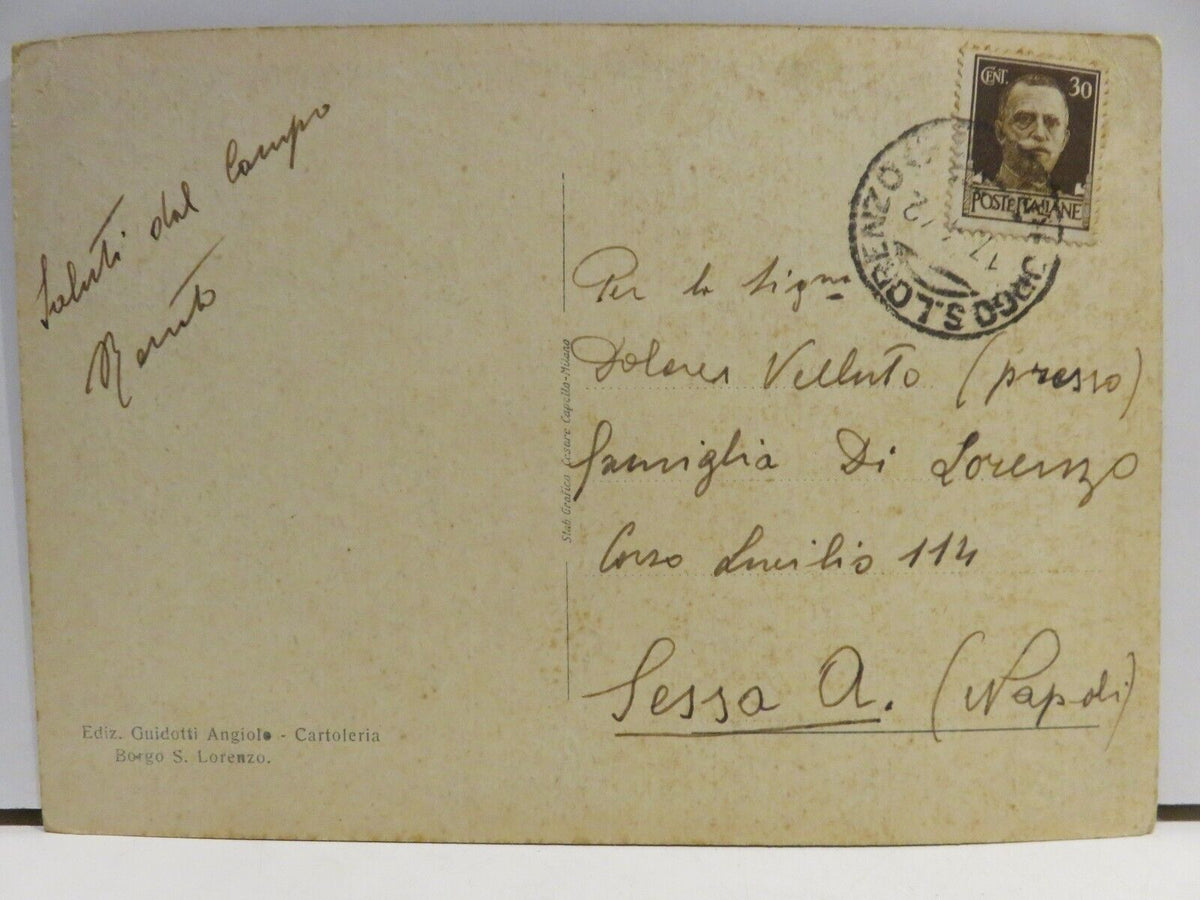 Saluti dal Campo
Renato
Ediz. Guidotti Angiolo - Cartoleria
Borgo S. Lorenzo.
Stab Grafico Cesare Capello-Milano
CENT. 30
POSTE ITALIANE
BORGO S. LORENZO
17
Per la Sigra
Dolores Velluto (presso)
famiglia Di Lorenzo
Corso Lucilio 114
Sessa A. (Napoli)